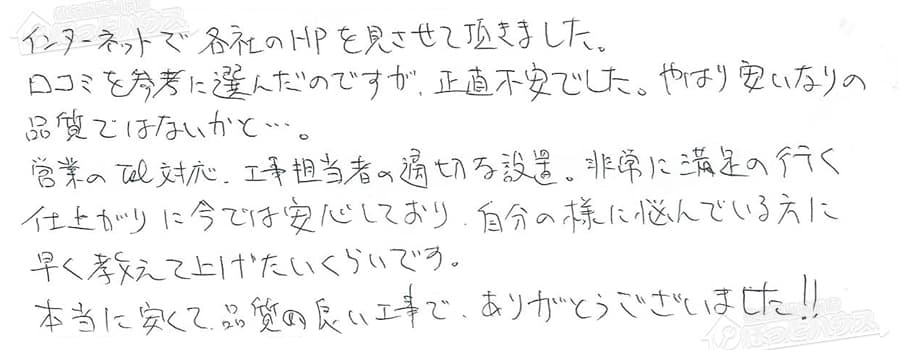 インターネットで各社のHPを見させて頂きました。
口コミを参考に選んだのですが、正直不安でした。やはり安いなりの
品質ではないかと…。
営業のTel対応、工事担当者の適切な設置。非常に満足の行く
仕上がりに今では安心しており、自分の様に悩んでいる方に
早く教えて上げたいくらいです。
本当に安くて、品質の良い工事で、ありがとうございました!!